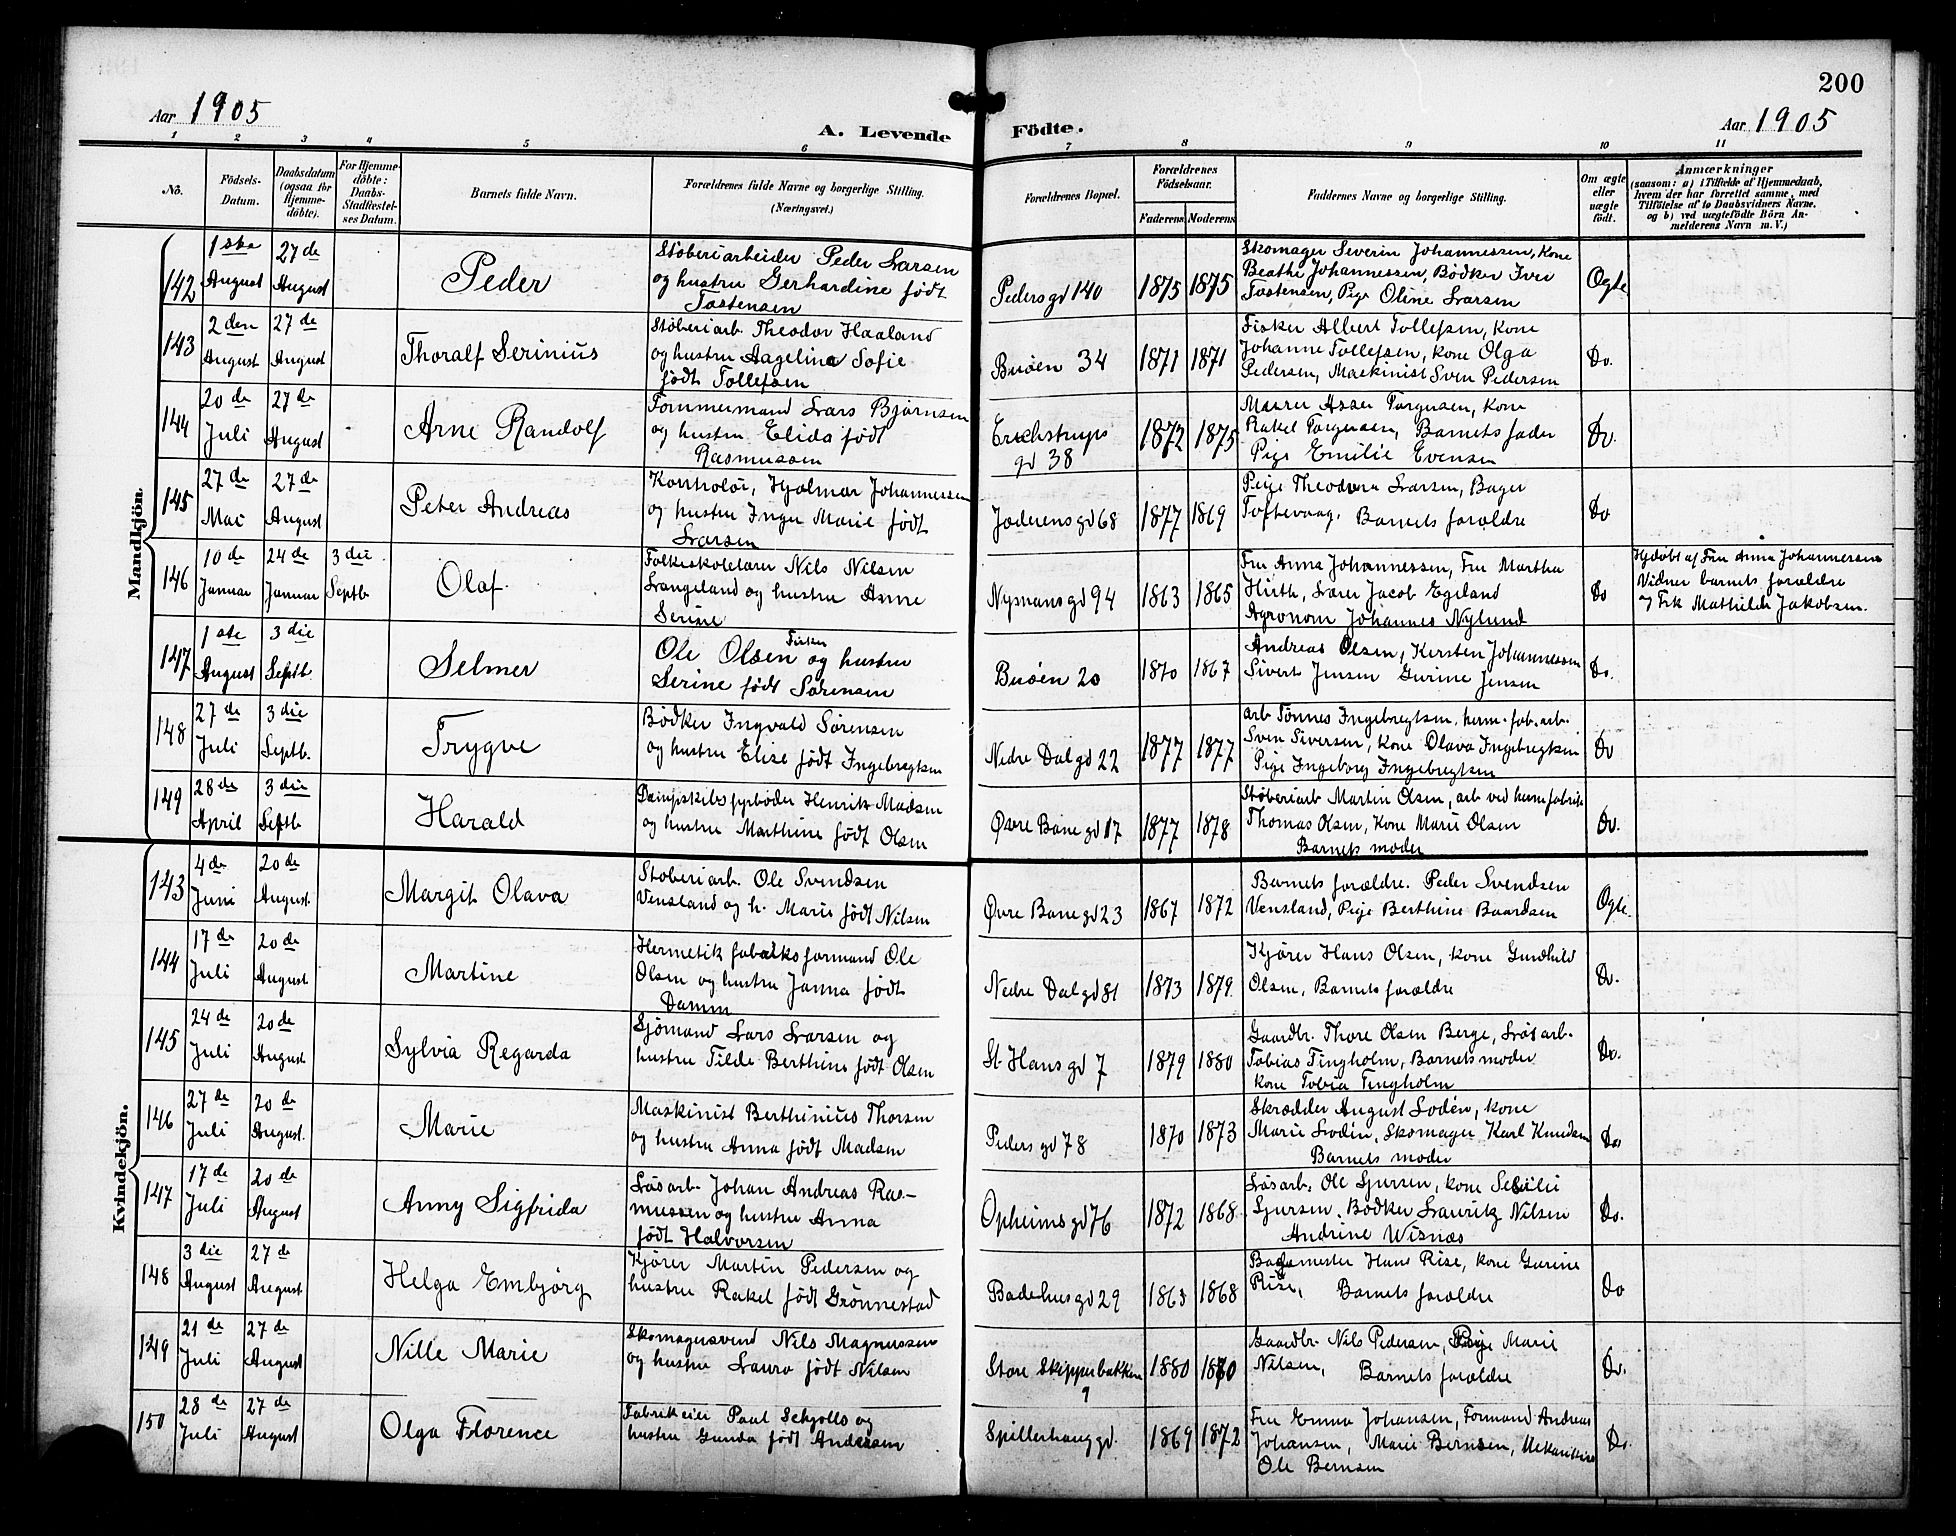 200
Aar 1905
A. Levende Födte.
Aar 1905
1 2 3 4 5 6 7 8 9 10 11
No.
Födsels-Datum.
Daabsdatum (ogsaa for Hjemme-döbte).
For Hjemme-döbte: Daabs-Stadfæstel-ses Datum.
Barnets fulde Navn.
Forældrenes fulde Navne og borgerlige Stilling. (Næringsvei.)
Forældrenes Bopæl.
Forældrenes Födselsaar.
Faderens Moderens
Faddernes Navne og borgerlige Stilling.
Om ægte eller uægte födt.
Anmærkninger
(saasom: a) i Tilfælde af Hjemmedaab,
hvem der har forrettet samme, med
Tilföielse af to Daabsvidners Navne,
og b) ved uægtefödte Börn An-
melderens Navn m. V.)
Mandkjön.
142 1ste August 27de August Peder
Støberiarbeider Peder Larsen
og hustru Gerhardine født
Tostensen
Peders gd 140 1875 1875
Skomager Severin Johannessen, Kone
Beathe Johannessen, Bødker Iver
Tostensen, Pige Oline Larsen
Ægte
143 2den August 27de August Thoralf Serinius
Støberiarb. Theodor Haaland
og hustru Aageline Sofie
født Tollefsen
Buøen 34 1871 1871
Fisker Albert Tollefsen, Kone
Johanne Tollefsen, Kone Olga
Pedersen, Maskinist Sven Pedersen
Do.
144 20de Juli 27de August Arne Randolf
Tømmermand Lars Bjørnsen
og hustru Elida født
Rasmussen
Erichstrups gd 38 1872 1875
Murer Asser Torgersen, Kone
Rakel Torgersen, Barnets fader
Pige Emilie Evensen
Do.
145 27de Mai 27de August Peter Andreas
Hjalmar Johannessen
og hustru Inger Marie født
Larsen
Jæderens gd 68 1877 1869
Pige Theodora Larsen, Bager
Toftevaag, Barnets forældre
Do
146 10de Januar 24de Januar 3die Septb Olaf
Folkeskolelærer Nils Nilsen
Langeland og hustru Anne
Serine
Nymans gd 94 1863 1865
Fru Anna Johannessen, Fru Martha
Hirth, Lærer Jacob Egeland
Agronom Johannes Nylund
Do
Hjdøbt af Fru Anna Johannessen
Vidner barnets forældre
og Frk Mathilde Jakobsen.
147 1ste August 3die Septb. Selmer
Fisker
Ole Olsen og hustru
Serine født Sørensen
Buøen 20 1870 1867
Andreas Olsen, Kirsten Johannessen
Sivert Jensen Gurine Jensen
Do.
148 27de Juli 3die Septb. Trygve
Bødker Ingvald Sørensen
og hustru Elise født Ingebregtsen
Nedre Dal gd 22 1877 1877
arb Tønnes Ingebregtsen, herm. fab. arb.
Sven Siversen, Kone Olava Ingebregtsen
Pige Ingeborg Ingebregtsen
Do
149 28de April 3die Septb Harald
Dampskibsfyrbøder Henrik Madsen
og hustru Marthine født Olsen
Øvre Bane gd 17 1877 1878
Støberiarb Martin Olsen, arb ved hermfabrik
Thomas Olsen, Kone Marie Olsen
Barnets moder
Do.
Kvindekjön.
143 4de Juni 20de August Margit Olava
Støberiarb. Ole Svendsen
Vensland og h. Marie født Nilsen
Øvre Bane gd 23 1867 1872
Barnets forældre. Peder Svendsen
Vensland, Pige Berthine Baardsen
Ægte.
144 17de Juli 20de August. Martine
Hermetikfabriksformand Ole
Olsen og hustru Janna født
Damm
Nedre Dal gd 81 1873 1879
Kjører Hans Olsen, Kone Gundhild
Olsen, Barnets forældre
Do.
145 24de Juli 20de August Sylvia Regarda
Sjømand Lars Larsen og
hustru Tilde Berthine født Olsen
St. Hans gd 7 1879 1880
Gaardbr. Thore Olsen Berge, Løsarb.
Tobias Tingholm, Barnets moder
Kone Tobia Tingholm
Do.
146 27de Juli 20de August. Marie
Maskinist Berthinius Thorsen
og hustru Anna født Madsen
Peders gd 78 1870 1873
Skrædder August Lodén, Kone
Marie Lodén, Skomager Karl Knudsen
Barnets moder
Do
147 17de Juli 20de August Anny Sigfrida
Løsarb. Johan Andreas Ras-
mussen og hustru Anna
født Halvorsen
Opheims gd 76 1872 1868
Løsarb. Ole Sjursen, Kone
Sjursen, Bødker Lauritz Nilsen
Andrine Wisnæs
Do.
148 3die August 27de August Helga Embjørg
Kjører Martin Pedersen og
hustru Rakel født Grønnestad
Badehus gd 29 1863 1868
Hans Rise, Kone Gurine
Rise, Barnets forældre
Do
149 21de Juli 27de August Nille Marie
Skomagersvend Nils Magnussen
og hustru Laura født Nilsen
Store Skipperbakken 9 1880
Gaardbr. Nils Pedersen, Pige Marie
Nilsen, Barnets forældre
Do.
150 28de Juli 27de August Olga Florence
Fabrikeier Paul
hustru Gunda født Andersen
Spillerhauggd. 1869 1872
Fru Emma Johansen, Formand Andreas
Johansen, Marie Bernsen,
Ole Bernsen
Do.